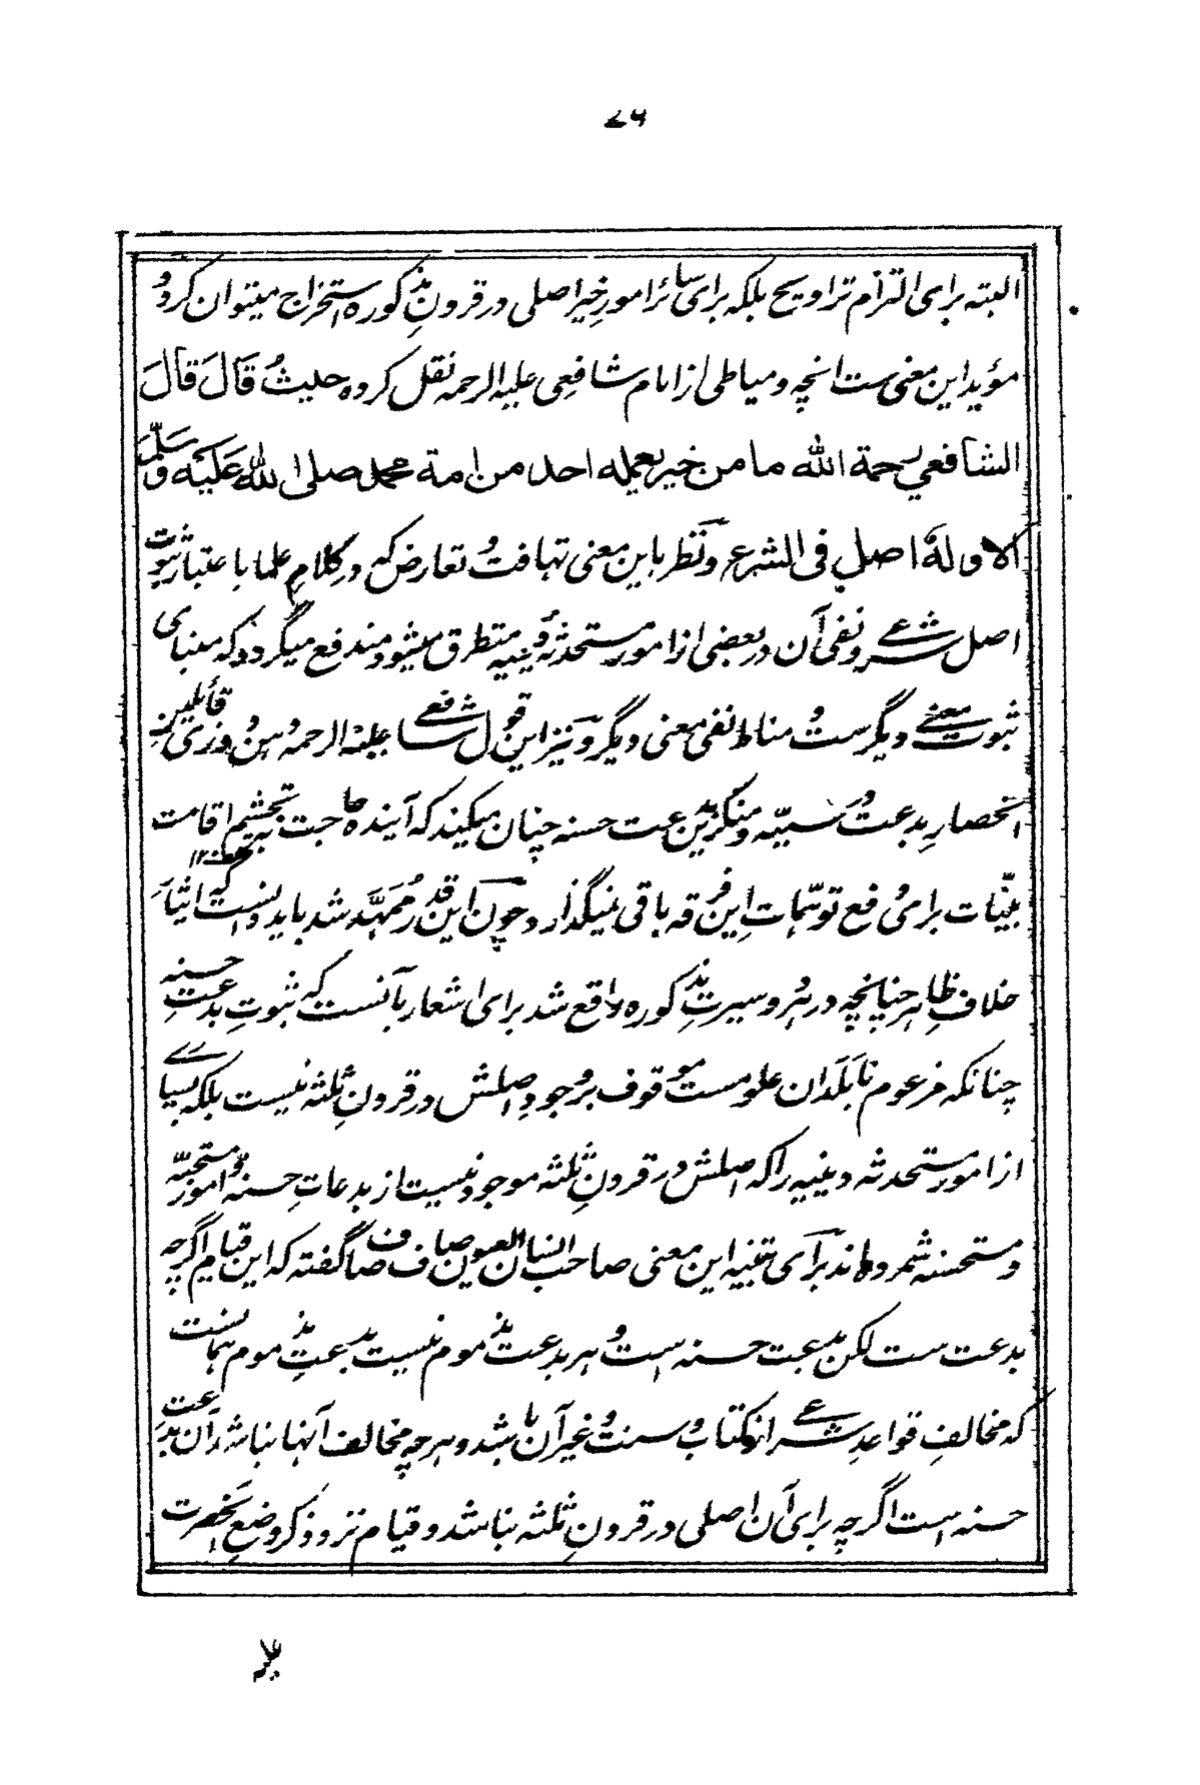 البته برای التزام تراویح بلکه برای سائر امورِ خیر اصلی در قرونِ مذکوره استخراج میتوان کرد و
مؤید این معنی ست انچه دمیاطی از امام شافعی علیه الرحمه نقل کرده حیث قَالَ قَالَ
الشافعي رحمة الله ما من خیر یعمله احد من امة محمد صلی الله عَلَیْه وَسَلَّمَ
الا و لهٗ اصل فی الشرع و نظر باین معنی تهافت و تعارض که در کلامِ علما باعتبار ثبوت
اصل شرعی و نفی آن در بعضی از امور مستحدثهٔ دینیه متطرق میشود مندفع میگردد که مبنای
ثبوت معنے دیگرست و مناط نفی معنی دیگر و نیز این قول شافعی علیه الرحمه وهن و رزیِ قائلینِ
انحصارِ بدعت و سیّئه و منکرینِ بدعت حسنه چنان میکند که آینده حاجت به تجشیم اقامت
بیّنات برای دفع توهّمات اینِ فرقه باقی نمیگذارد و چون این قدر مُمَهَّد شد باید دانست که ایثار
خلافِ ظاهر چنانچه در هر دو سیرتِ مذکوره واقع شد برای اشعار بآنست که ثبوتِ بدعتِ حسنه
چنانکه مزعوم نابَلَدان علومست موقوف بر وجودِ اصلش در قرونِ ثلثه نیست بلکه بسیاے
از امور مستحدثه دینیه را که اصلش در قرونِ ثلثه موجود نیست از بدعاتِ حسنه و امور مستحبّه
و مستحسنه شمرده اند برای تنبیه این معنی صاحب انسان العیون صاف صاف گفته که این قیام اگرچه
بدعت ست لکن بدعت حسنه است و هر بدعت مذموم نیست بدعتِ مذموم همانست
که مخالفِ قواعدِ شرعی از کتاب و سنت و غیر آن باشد و هرچه مخالف آنها نباشد آن بدعت
حسنه است اگرچه برای آن اصلی در قرونِ ثلثه نباشد و قیام نزد ذکر وضعِ آنحضرت